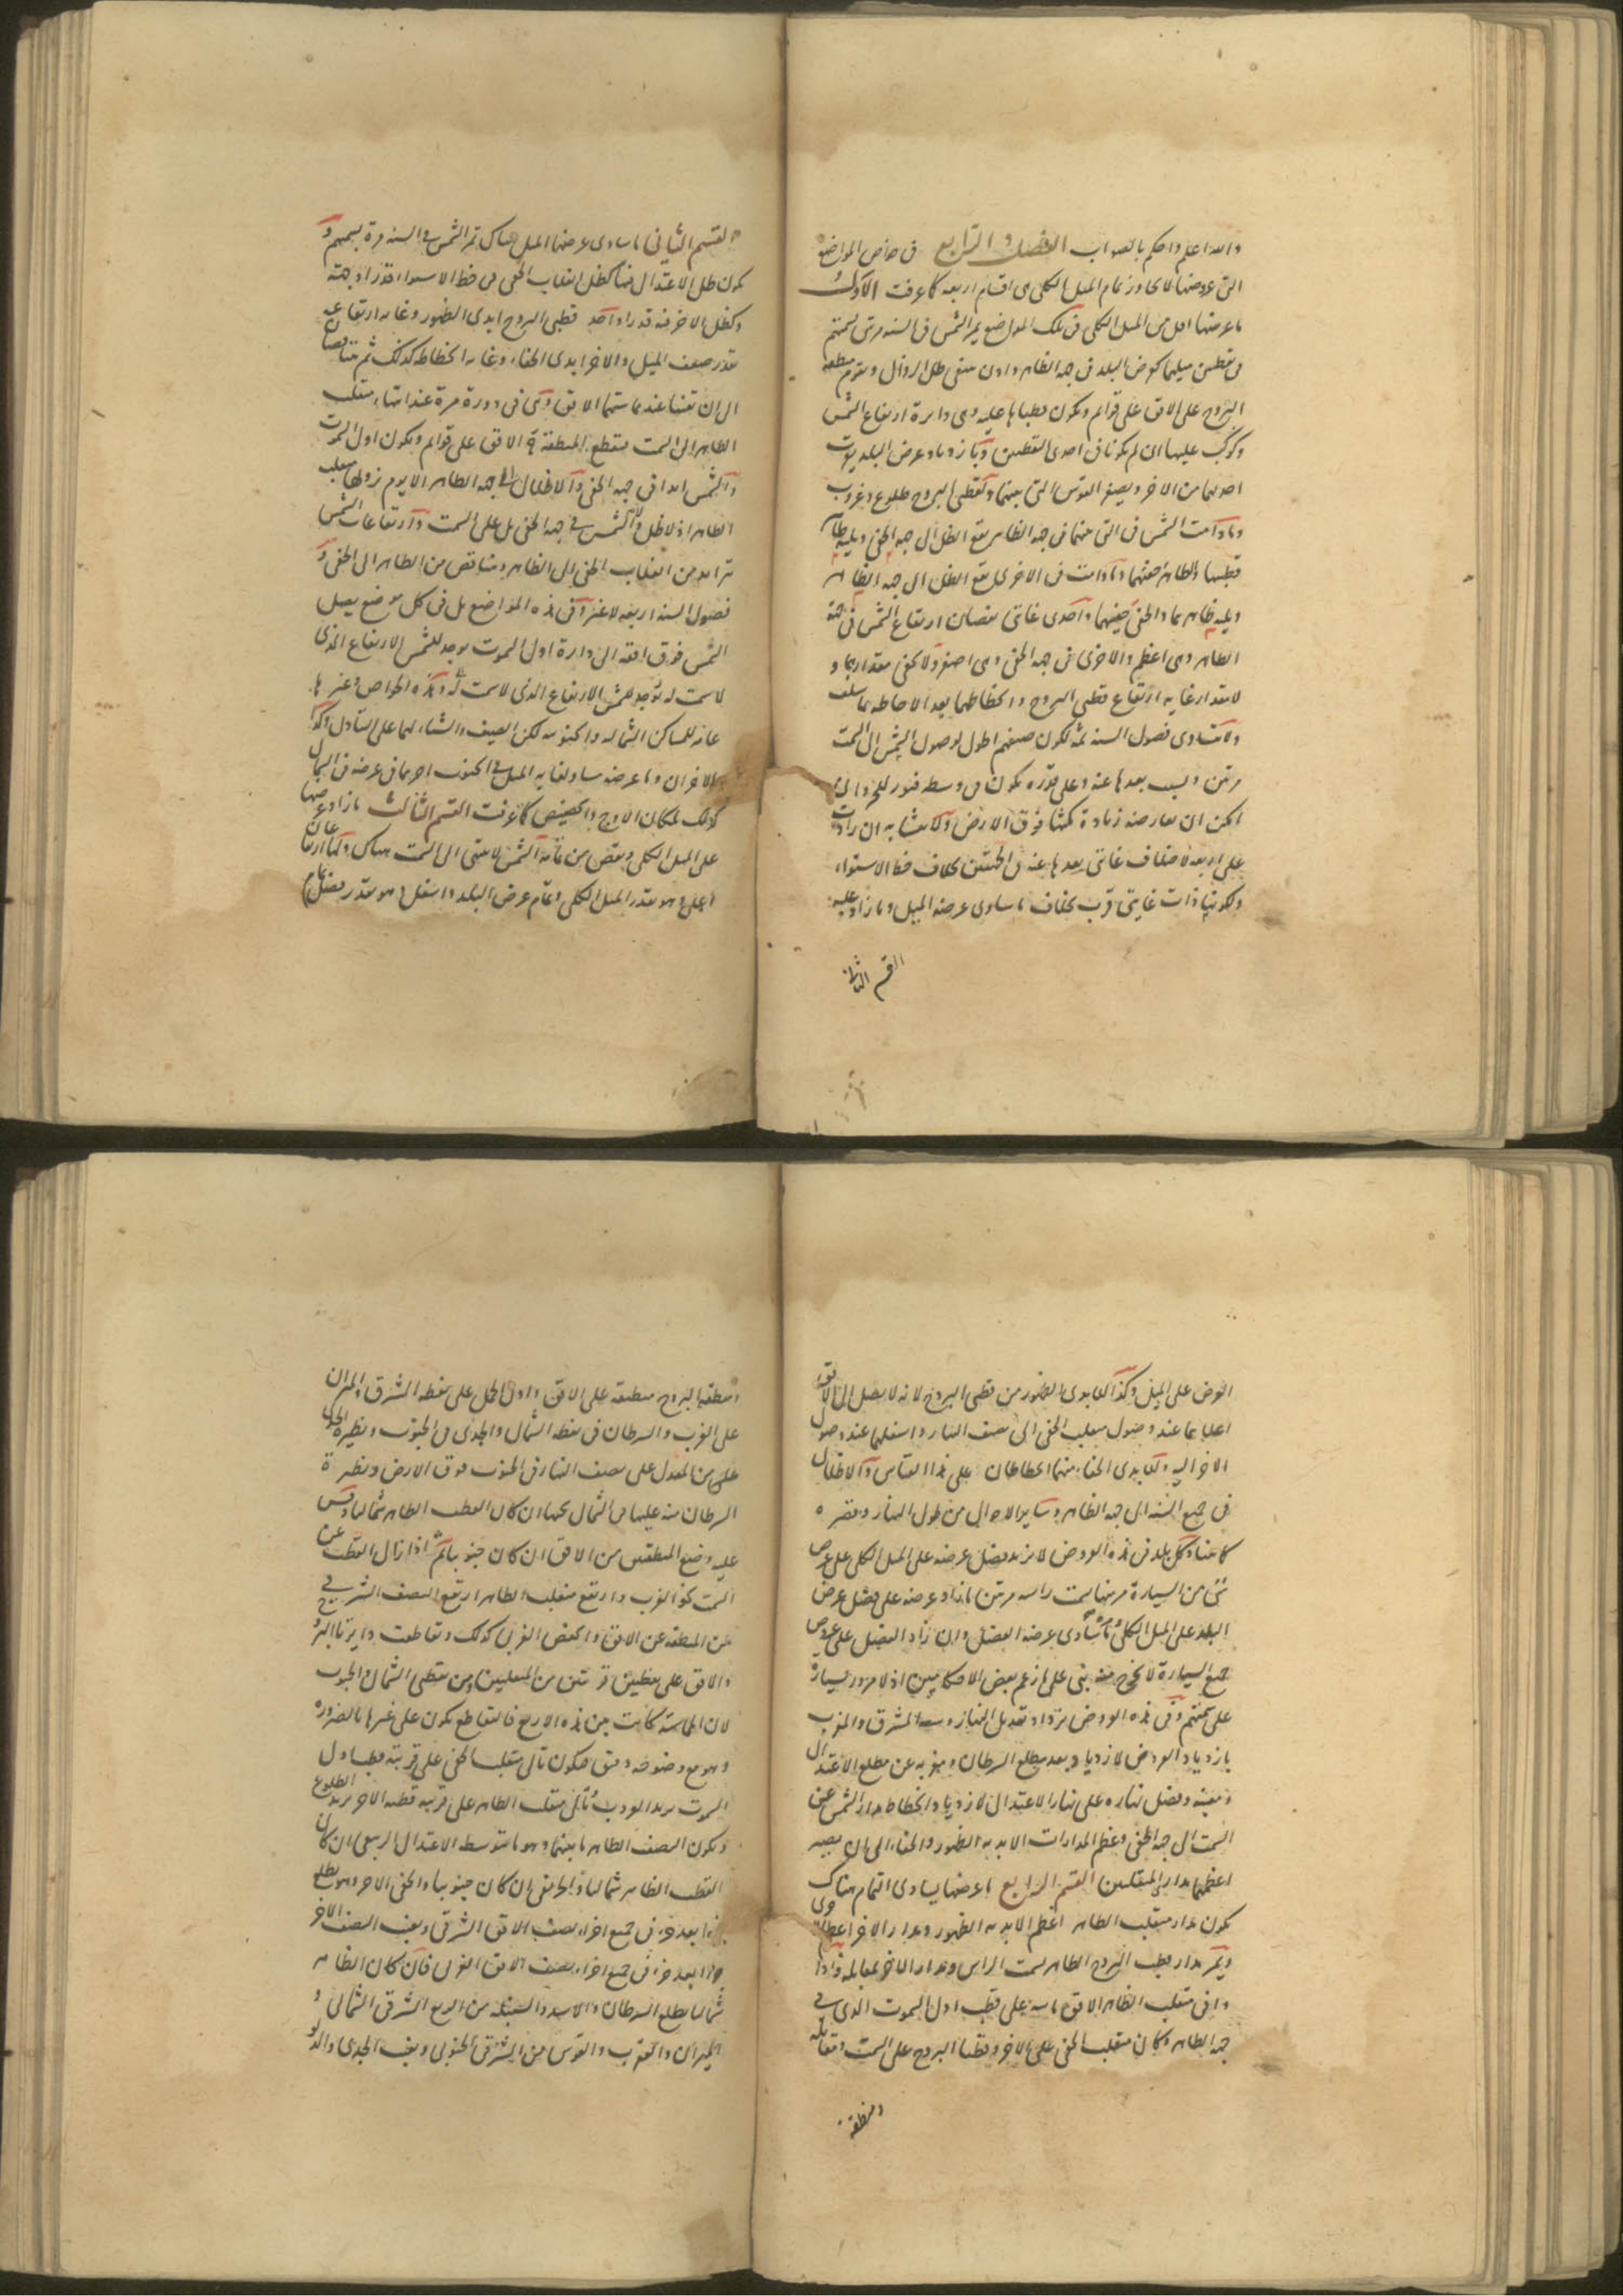 والله اعلم واحكم بالصواب الفصل الرابع فى خواص المواضع
التى عروضها لا تجاوز تمام الميل الكلى وهى اقسام اربعة كما عرفت الاول
ما عرضها اقل من الميل الكلى فى تلك المواضع يمر الشمس فى السنة مرتين بسمتهم
فى نقطتين ميلهما كعرض البلد فى جهة الظاهر واذن ينتفى ظل الزوال ويقوم منطقة
البروج على الافق على قوائم ويكون قطباها عليه وهى دائرة ارتفاع الشمس
وكوكب عليها ان لم يكونا فى احدى النقطتين وبازدياد عرض البلد يقرب
احديهما من الاخر ويصغر القوس التى بينهما ولقطبى البروج طلوع وغروب
وما دامت الشمس فى التى عنهما فى جهة الظاهر يقع الظل الى جهة الخفى ويكون ظاهر
قطبيها والظاهر خفيهما وما دامت فى الاخرى يقع الظل الى جهة الظاهر
ويكون ظاهرهما والخفى خفيهما واحدى غايتى نقصان ارتفاع الشمس فى جهة
الظاهر وهى اعظم والاخرى فى جهة الخفى وهى اصغر ولا يخفى مقدارهما و
لا مقدار غاية ارتفاع قطبى البروج وانحطاطهما بعد الاحاطة بما سلف
ولا تتساوى فصول السنة ثمة لكون صيفهم اطول لوصول الشمس الى السمت
مرتين وبسبب بعدها عنه وعلى قدره يكون فى وسطه فتور للحر وان
امكن ان يعارضه زيادة مكثها فوق الارض ولا يتشابه ان زادت
على اربعة لاختلاف غايتى بعدها عنه فى الجهتين بخلاف خط الاستواء
ولكونها ذات غايتى قرب بخلاف ما ساوى عرضه الميل وما زاد عليه
القسم الثانى
القسم الثانى ما ساوى عرضها الميل هناك تمر الشمس فى السنة مرة بسمتهم و
يكون ظل الاعتدال فيها كظل انقلاب الخفى فى خط الاستواء قدرا وجهة
وكظل الاخر فيه قدرا واحد قطبى البروج ابدى الظهور وغاية ارتفاعه
بقدر ضعف الميل والاخر ابدى الخفاء وغاية انحطاطه كذلك ثم يتناقصان
الى ان تفنيا عند مماستهما الافق وهى فى دورة مرة عند انتهاء منقلب
الظاهر الى السمت فتقطع المنطقة الافق على قوائم ويكون اول السموت
والشمس ابدا فى جهة الخفى والاظلال الى جهة الظاهر الا يوم نزولها منقلب
الظاهر اذ لا ظل ولا الشمس فى جهة الخفى بل على السمت وارتفاعات الشمس
تتزايد من انقلاب الخفى الى الظاهر وتتناقص من الظاهر الى الخفى و
فصول السنة اربعة لا غير وفى هذه المواضع بل فى كل موضع يصل
الشمس فوق افقه الى دائرة اول السموت يوجد للشمس الارتفاع الذى
لا سمت له يوجد للشمس الارتفاع الذى لا سمت له وهذه الخواص وغيرها
عامة للمساكن الشمالية والجنوبية لكن الصيف والشتاء لهما على التبادل وكذا
الاخران وما عرضه مساو لغاية الميل فى الجنوب احر مما فى عرضه فى الشمال
كذلك لمكان الاوج والحضيض كما عرفت القسم الثالث ما زاد عرضها
على الميل الكلى ونقص من تمامه الشمس لا تنتهى الى السمت هناك ولها ارتفاعان
اعلى وهو بقدر الميل الكلى وتمام عرض البلد واسفل وهو بقدر فضل تمام
العرض على الميل وكذا لابدى الظهور من قطبى البروج لانه لا يصل الى الافق
اعلاهما عند وصول منقلب الخفى الى نصف النهار واسفلهما عند وصول
الاخر اليه ولابدى الخفاء منهما انحطاطان على هذا القياس والاظلال
فى جميع السنة الى جهة الظاهر وسائر الاحوال من طول النهار وقصره
كما هناك وكل بلد فى هذه العروض لا يزيد فضل عرضه على الميل الكلى على عرض
شئ من السيارة مر بها سمت راسه مرتين ما زاد عرضه على فضل عرض
البلد على الميل الكلى ومرة ما تساوى عرضه الفضل وان زاد الفضل على عروض
جميع السيارة لا يخرج منه نبى على ما زعم بعض الاحكاميين اذ لا مرور لسيارة
على سمتهم وفى هذه العروض يزداد تعديل النهار وسعة المشرق والمغرب
بازدياد العروض لازدياد بعد مطلع السرطان ومغربه عن مطلع الاعتدال
ومغيبه وفضل نهاره على نهار الاعتدال لازدياد انحطاط مدار الشمس عن
السمت الى جهة الخفى وعظم المدارات الابدية الظهور والخفاء الى ان يصير
اعظمها مدارى المنقلبين القسم الرابع ما عرضها يساوى التمام هناك
يكون مدار منقلب الظاهر اعظم الابدية الظهور ومدار الاخر اعظم
ويمر مدار قطب البروج الظاهر بسمت الراس ومدار الاخر بمقابله فاذا
وافى منقلب الظاهر الافق ماسه على قطب اول السموت الذى فى
جهة الظاهر وكان منقلب الخفى على الاخر وقطبا البروج على السمت ومقابله
ومنطقة
ومنطقة البروج منطبقة على الافق واول الحمل على نقطة المشرق والميزان
على المغرب والسرطان فى نقطة الشمال والجدى فى الجنوب ونظيره الجدى
على من المعدل على نصف النهار فى الجنوب فوق الارض ونظيرة
السرطان منه عليها فى الشمال تحتها ان كان القطب الظاهر شماليا وقس
عليه وضع المنطقتين من الافق ان كان جنوبيا ثم اذا زال القطب عن
السمت نحو الغرب وارتفع منقلب الظاهر ارتفع النصف الشرقى
من المنطقة عن الافق وانخفض الغربى كذلك وتقاطعت دايرتا البروج
والافق على نقطتين قريبتين من المنقلبين ومن نقطتى الشمال والجنوب
لان المماسة كانت بين هذه الاربع فالتقاطع يكون على غيرها بالضرورة
وهو مع وضوحه دقيق فيكون تالى منقلب الخفى على قريبة قطب اول
السموت يريد الغروب وتالى منقلب الظاهر على قريبة قطبه الاخر يريد الطلوع
ويكون النصف الظاهر ما بينهما وهو ما يتوسطه الاعتدال الربيعى ان كان
القطب الظاهر شماليا والخريفى ان كان جنوبيا والخفى الاخر وهو يطلع
جزءا بعد جزء فى جميع اجزاء نصف الافق الشرقى ويغيب النصف الاخر
جزءا بعد جزء فى جميع اجزاء نصف الافق الغربى فان كان الظاهر
شماليا يطلع السرطان والاسد والسنبلة من الربع الشرقى الشمالى و
الميزان والعقرب والقوس من الشرقى الجنوبى ويغيب الجدى والدلو